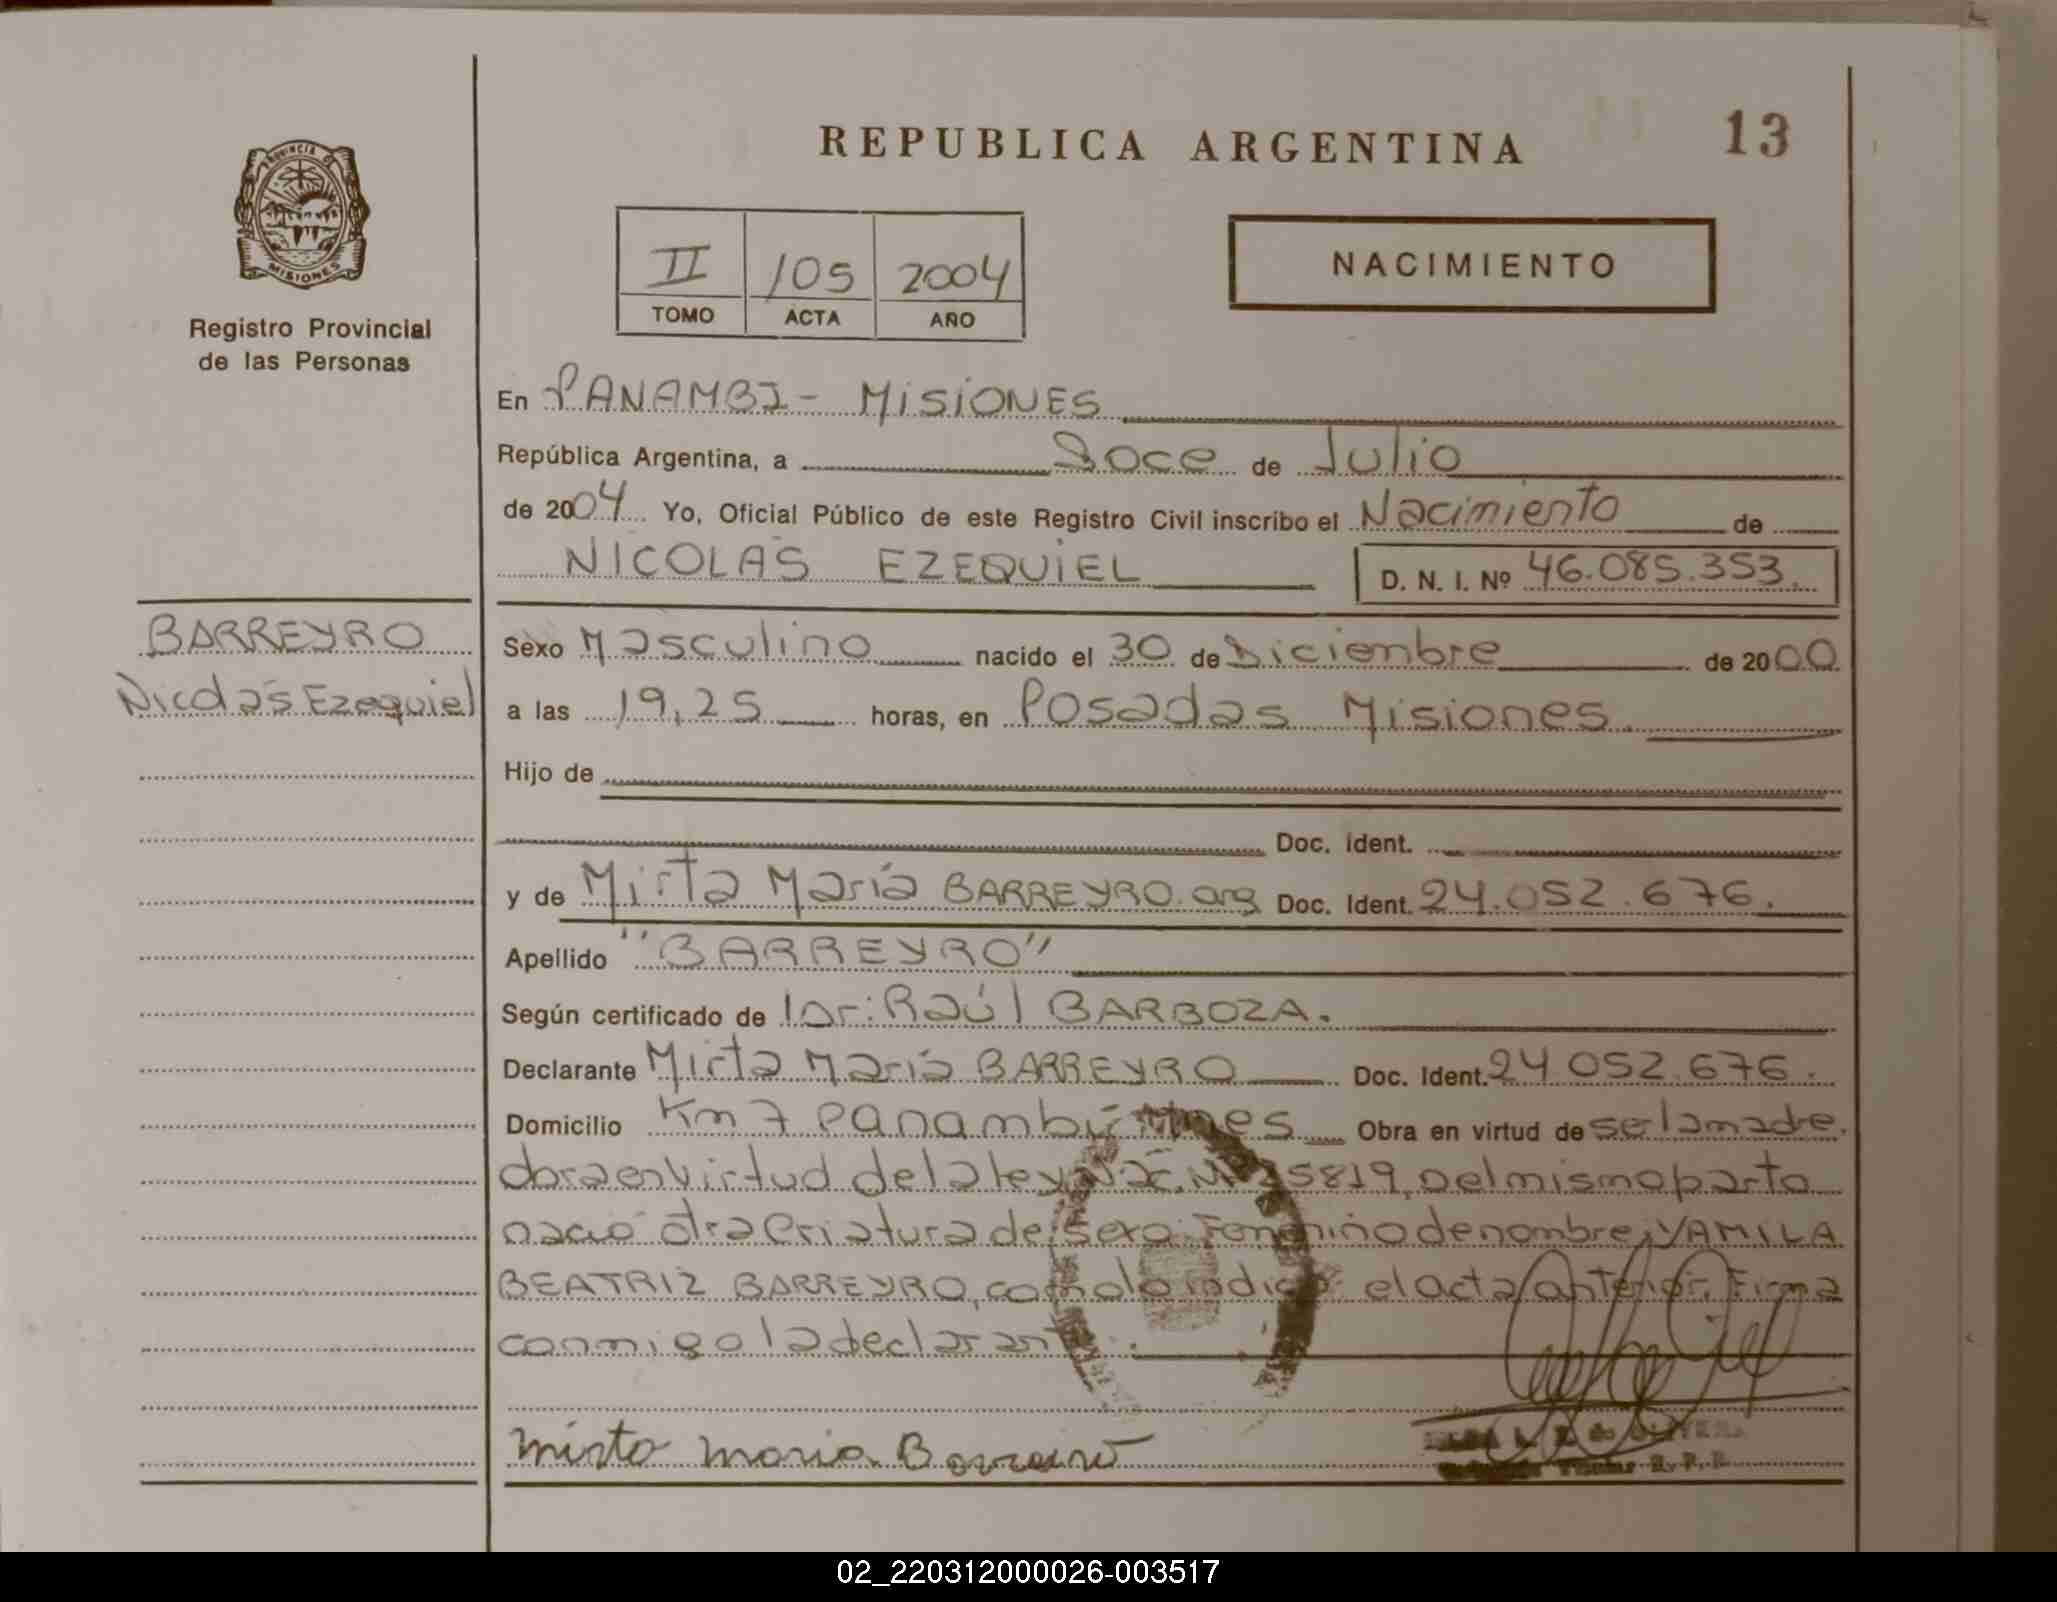 REPUBLICA ARGENTINA
13
PROVINCIA DE
MISIONES
Registro Provincial
de las Personas
II 105 2004
TOMO ACTA AÑO
NACIMIENTO
En PANAMBI - MISIONES
República Argentina, a Doce de Julio
de 2004 Yo, Oficial Público de este Registro Civil inscribo el Nacimiento de
NICOLÁS EZEQUIEL D. N. I. Nº 46.085.353.
BARREYRO
Nicolás Ezequiel
Sexo Masculino nacido el 30 de Diciembre de 2000
a las 19,25 horas, en Posadas Misiones.
Hijo de
Doc. Ident.
y de Mirta María BARREYRO. arg Doc. Ident. 24.052.676.
Apellido "BARREYRO"
Según certificado de Dr: Raúl BARBOZA.
Declarante Mirta María BARREYRO Doc. Ident. 24 052.676.
Domicilio Km 7 Panambí Mnes Obra en virtud de ser la madre.
obra en virtud de la ley Nac. Nº 25819, Del mismo parto
nació otra Criatura de sexo Femenino de nombre; YAMILA
BEATRIZ BARREYRO, como lo indica el acta anterior. Firma
conmigo la declarante.
Mirta Maria Barreiro
L. de OLIVERA
Titular R. P. P.
02_220312000026-003517